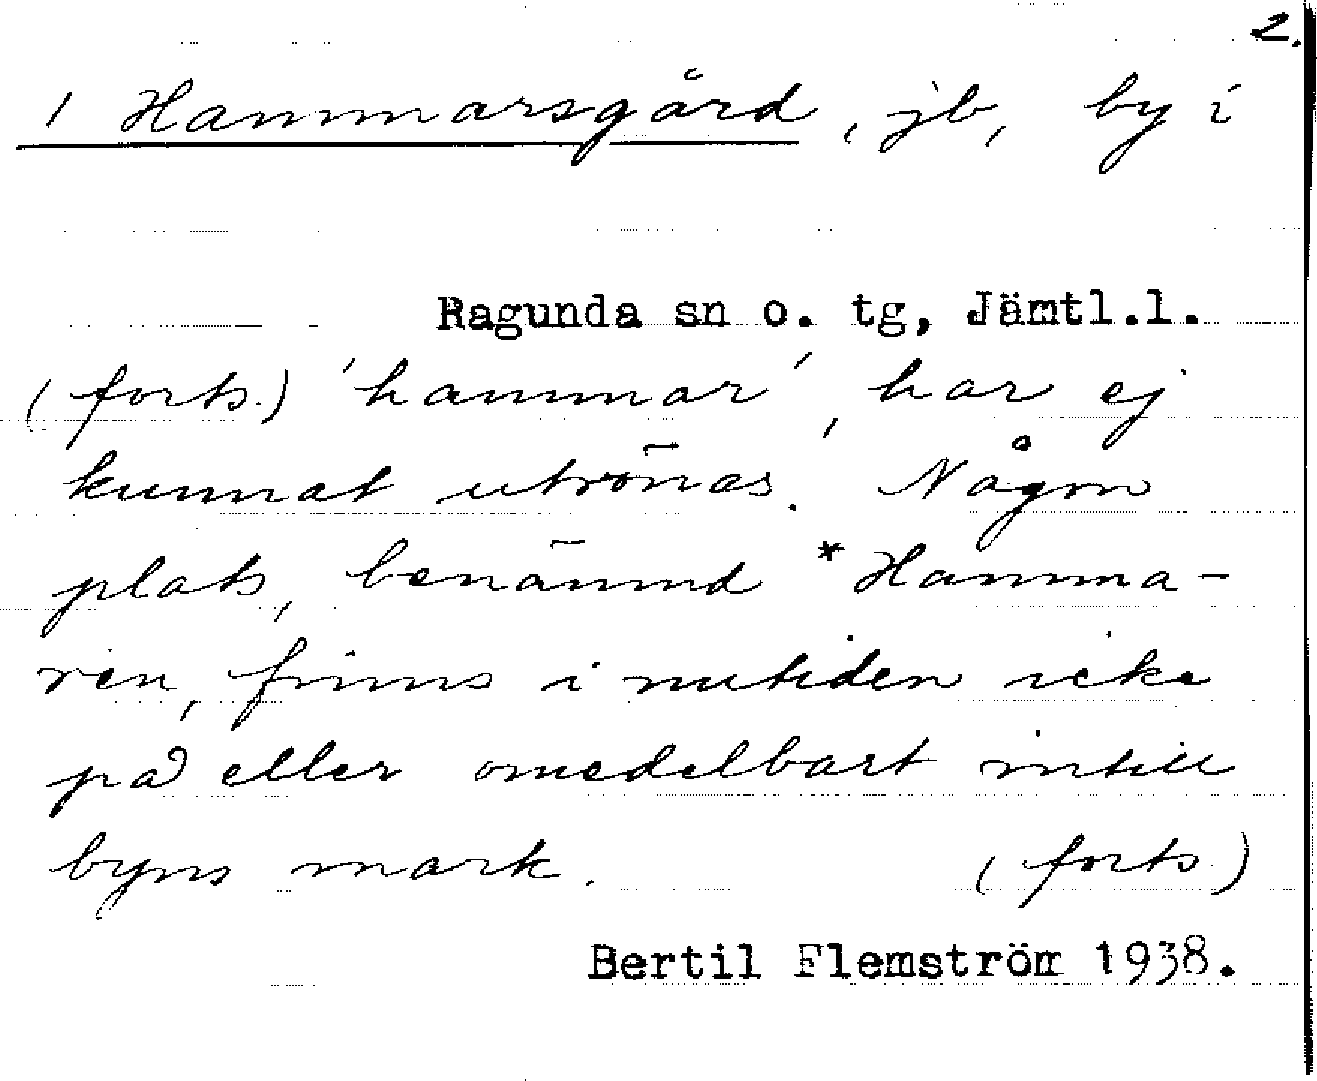 2.
/ Hammarsgård, jb, by i
Ragunda sn o. tg, Jämtl.l.
(forts.) 'hammar', har ej
kunnat utrönas. Någon
plats, benämnd *Hamma-
ren, finns i nutiden icke
på eller omedelbart intill
byns mark. (forts.)
Bertil Flemström 1938.